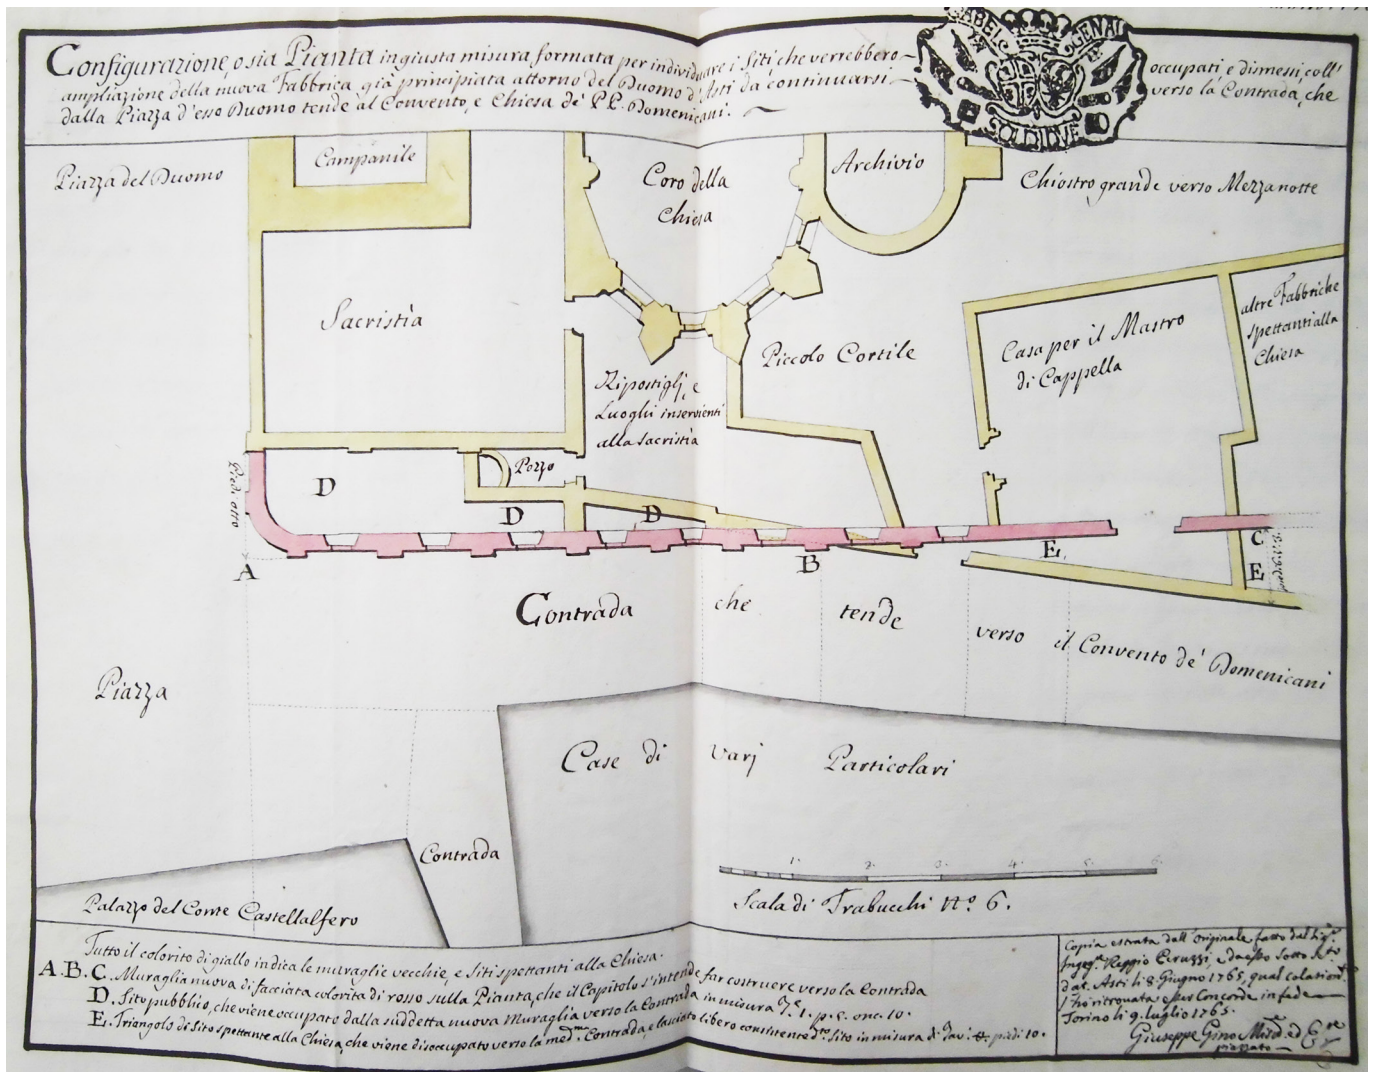 Configurazione, o sia Pianta in giusta misura formata per individuare i Siti, che verrebbero occupati, e dismessi, coll'
ampliazione della nuova Fabbrica già principiata attorno del Duomo d'Asti da continuarsi verso la Contrada, che
dalla Piazza d'esso Duomo tende al Convento, e Chiesa de' P.P. Domenicani.
GABEL GENAL
SOLDI DVE
Piazza del Duomo
Campanile
Coro della
Chiesa
Archivio
Chiostro grande verso Mezzanotte
Sacristia
Ripostigli, e
Luoghi inservienti
alla sacristia
Piccolo Cortile
Casa per il Mastro
di Cappella
altre Fabbriche
spettanti alla
Chiesa
Piedi otto
D
Pozzo
D
D
A
B
E.
C
E
Contrada che tende verso il Convento de' Domenicani
Piazza
Case di varj Particolari
Contrada
Palazzo del Conte Castellalfero
1. 2. 3. 4. 5. 6.
Scala di Trabucchi N.º 6.
Tutto il colorito di giallo indica le muraglie vecchie, e siti spettanti alla Chiesa.
A. B. C. Muraglia nuova di facciata colorita di rosso sulla Pianta, che il Capitolo s'intende far costruere verso la Contrada
D. Sito pubblico, che viene occupato dalla suddetta nuova Muraglia verso la Contrada in misura 1. p. 5. onc. 10.
E. Triangolo di Sito spettante alla Chiesa, che viene disoccupato verso la med.ma Contrada, e lasciato libero consistente d.to sito in misura di Tav. piedi 10.
Copia estratta dall'originale fatto dal Sig.r
Ingeg.re Reggio Peruzzi, e da esso sotto
d'at. Asti li 8. Giugno 1765,
ho ritrovata esser Concorde in fede
Torino li 9. luglio 1765.
Giuseppe Gino Mis.e ed